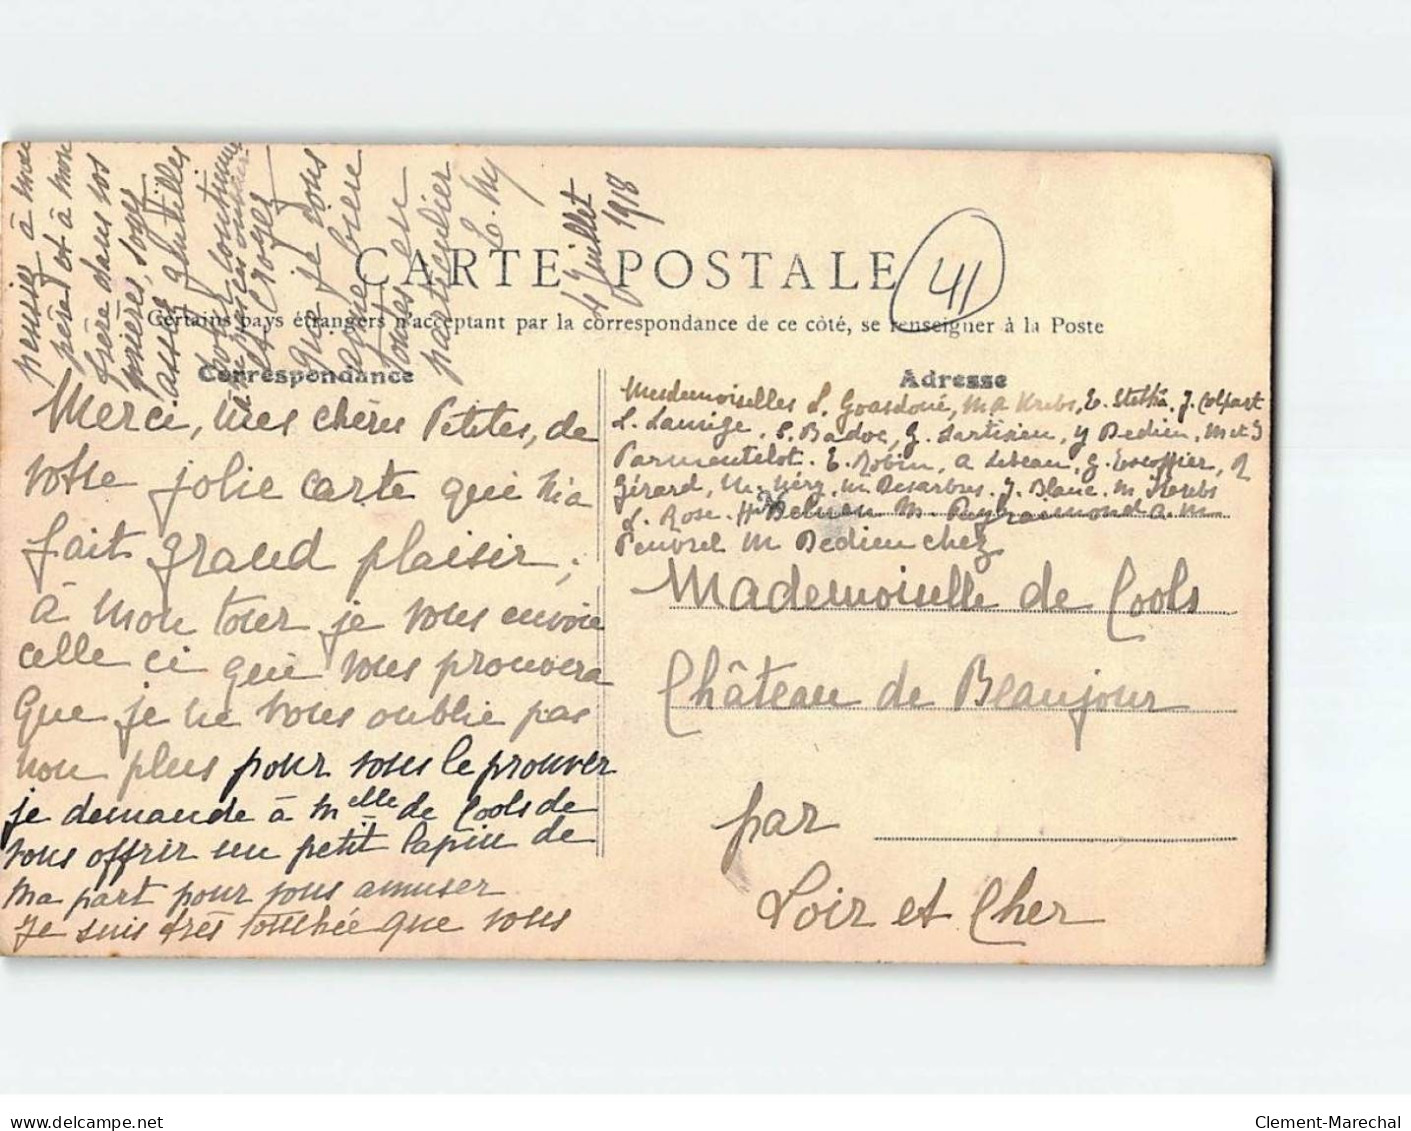 CARTE POSTALE
41
Certains pays étrangers n'acceptent par la correspondance de ce côté, se renseigner à la Poste
Correspondance
Merci, mes chères Petites, de
votre jolie carte qui m'a
fait grand plaisir ;
à mon tour je vous envoie
celle ci qui vous prouvera
que je ne vous oublie pas
non plus pour vous le prouver
je demande à Melle de Cools de
vous offrir un petit lapin de
ma part pour vous amuser
Je suis très touchée que vous
pensiez à mon
père et à mon
frère dans vos
prières, soyez
assez gentilles
pour continuer
et croyez
que je vous
aime bien
toutes en
particulier
4 Juillet
1918
Adresse
Mesdemoiselles L. Goasdoué, M A Krebs, E. J. Colpart
L. S. Badoc, G. Sartisien, Y Dedieu, M et J
Parmentelot. E. Robin, A Lebeau, G. Escoffier, R
Gérard, M. Néry, M Desarbres. J. Blanc. M Krebs
L. Rose. H M. Puyraimond A. M
M Dedieu chez
Mademoiselle de Cools
Château de Beaujour
par
Loir et Cher
Clement-Marechal